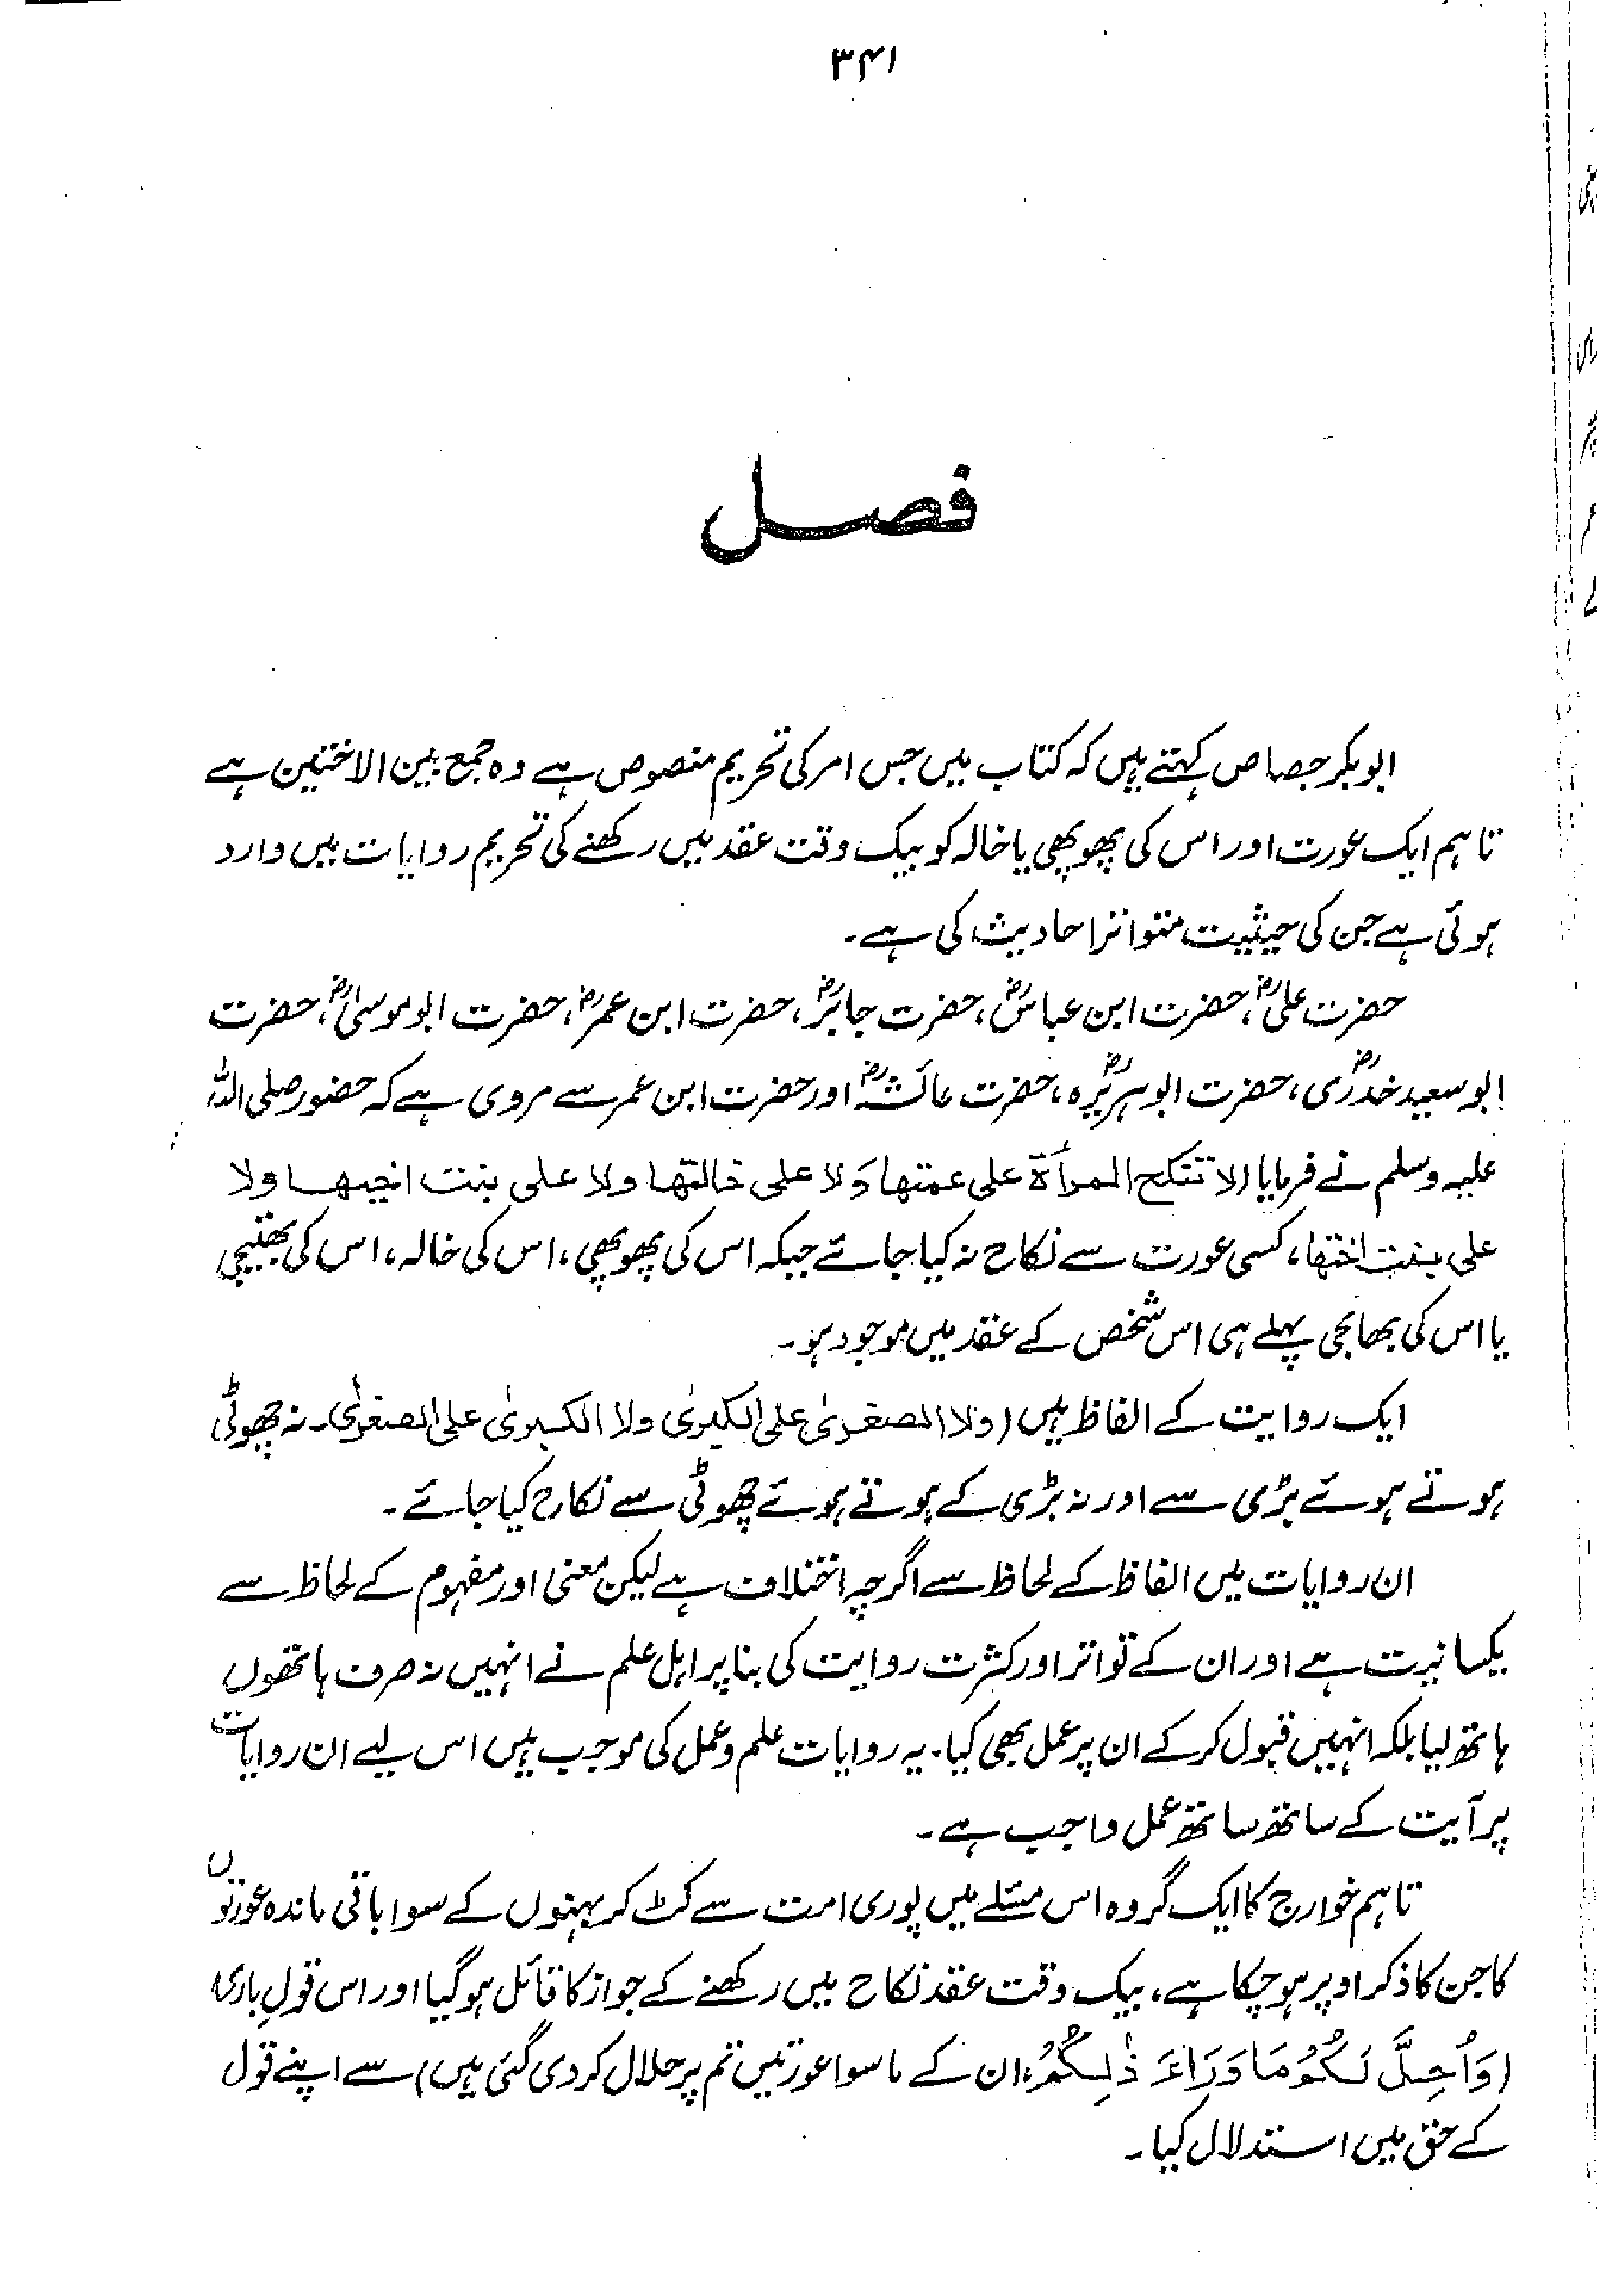 ۳۴۱
فصل
ابوبکر جصاص کہتے ہیں کہ کتاب میں جس امر کی تحریم منصوص ہے وہ جمع بین الاختین ہے
تاہم ایک عورت اور اس کی پھوپھی یا خالہ کو بیک وقت عقد میں رکھنے کی تحریم روایات میں وارد
ہوئی ہے جن کی حیثیت متواتر احادیث کی ہے۔
حضرت علیؓ، حضرت ابن عباسؓ، حضرت جابرؓ، حضرت ابن عمرؓ، حضرت ابوموسیٰؓ، حضرت
ابوسعید خدریؓ، حضرت ابوہریرہؓ، حضرت عائشہؓ اور حضرت ابن عمر سے مروی ہے کہ حضور صلی اللہ
علیہ وسلم نے فرمایا (لا تنکح المرأة علی عمتها وَلا علی خالتها ولا علی بنت اخیها ولا
علی بنت اختها، کسی عورت سے نکاح نہ کیا جائے جبکہ اس کی پھوپھی، اس کی خالہ، اس کی بھتیجی
یا اس کی بھانجی پہلے ہی اس شخص کے عقد میں موجود ہو۔
ایک روایت کے الفاظ ہیں (ولا الصغریٰ علی الکبریٰ ولا الکبریٰ علی الصغریٰ۔ نہ چھوٹی
ہوتے ہوئے بڑی سے اور نہ بڑی کے ہوتے ہوئے چھوٹی سے نکاح کیا جائے۔
ان روایات میں الفاظ کے لحاظ سے اگرچہ اختلاف ہے لیکن معنی اور مفہوم کے لحاظ سے
یکسانیت ہے اور ان کے تواتر اور کثرت روایت کی بنا پر اہل علم نے انہیں نہ صرف ہاتھوں
ہاتھ لیا بلکہ انہیں قبول کرکے ان پر عمل بھی کیا۔ یہ روایات علم و عمل کی موجب ہیں اس لیے ان روایات
پر آیت کے ساتھ ساتھ عمل واجب ہے۔
تاہم خوارج کا ایک گروہ اس مسئلے میں پوری امت سے کٹ کر بہنوں کے سوا باقی ماندہ عورتوں
کا جن کا ذکر اوپر ہو چکا ہے، بیک وقت عقد نکاح میں رکھنے کے جواز کا قائل ہوگیا اور اس قولِ باری
(وَاُحِلَّ لَکُمْ مَا وَرَاءَ ذٰلِکُمْ، ان کے ماسوا عورتیں تم پر حلال کر دی گئی ہیں) سے اپنے قول
کے حق میں استدلال کیا۔